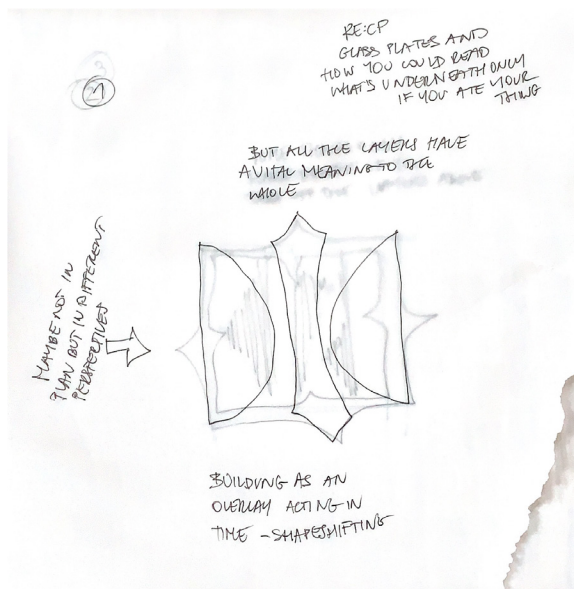 RE:CP
GLASS PLATES AND
HOW YOU COULD READ
WHAT'S UNDERNEATH ONLY
IF YOU ATE YOUR
THING
1
BUT ALL THE LAYERS HAVE
A VITAL MEANING TO THE
WHOLE
MAYBE NOT IN
PLAN BUT IN DIFFERENT
PERSPECTIVES
BUILDING AS AN
OVERLAY ACTING IN
TIME - SHAPESHIFTING